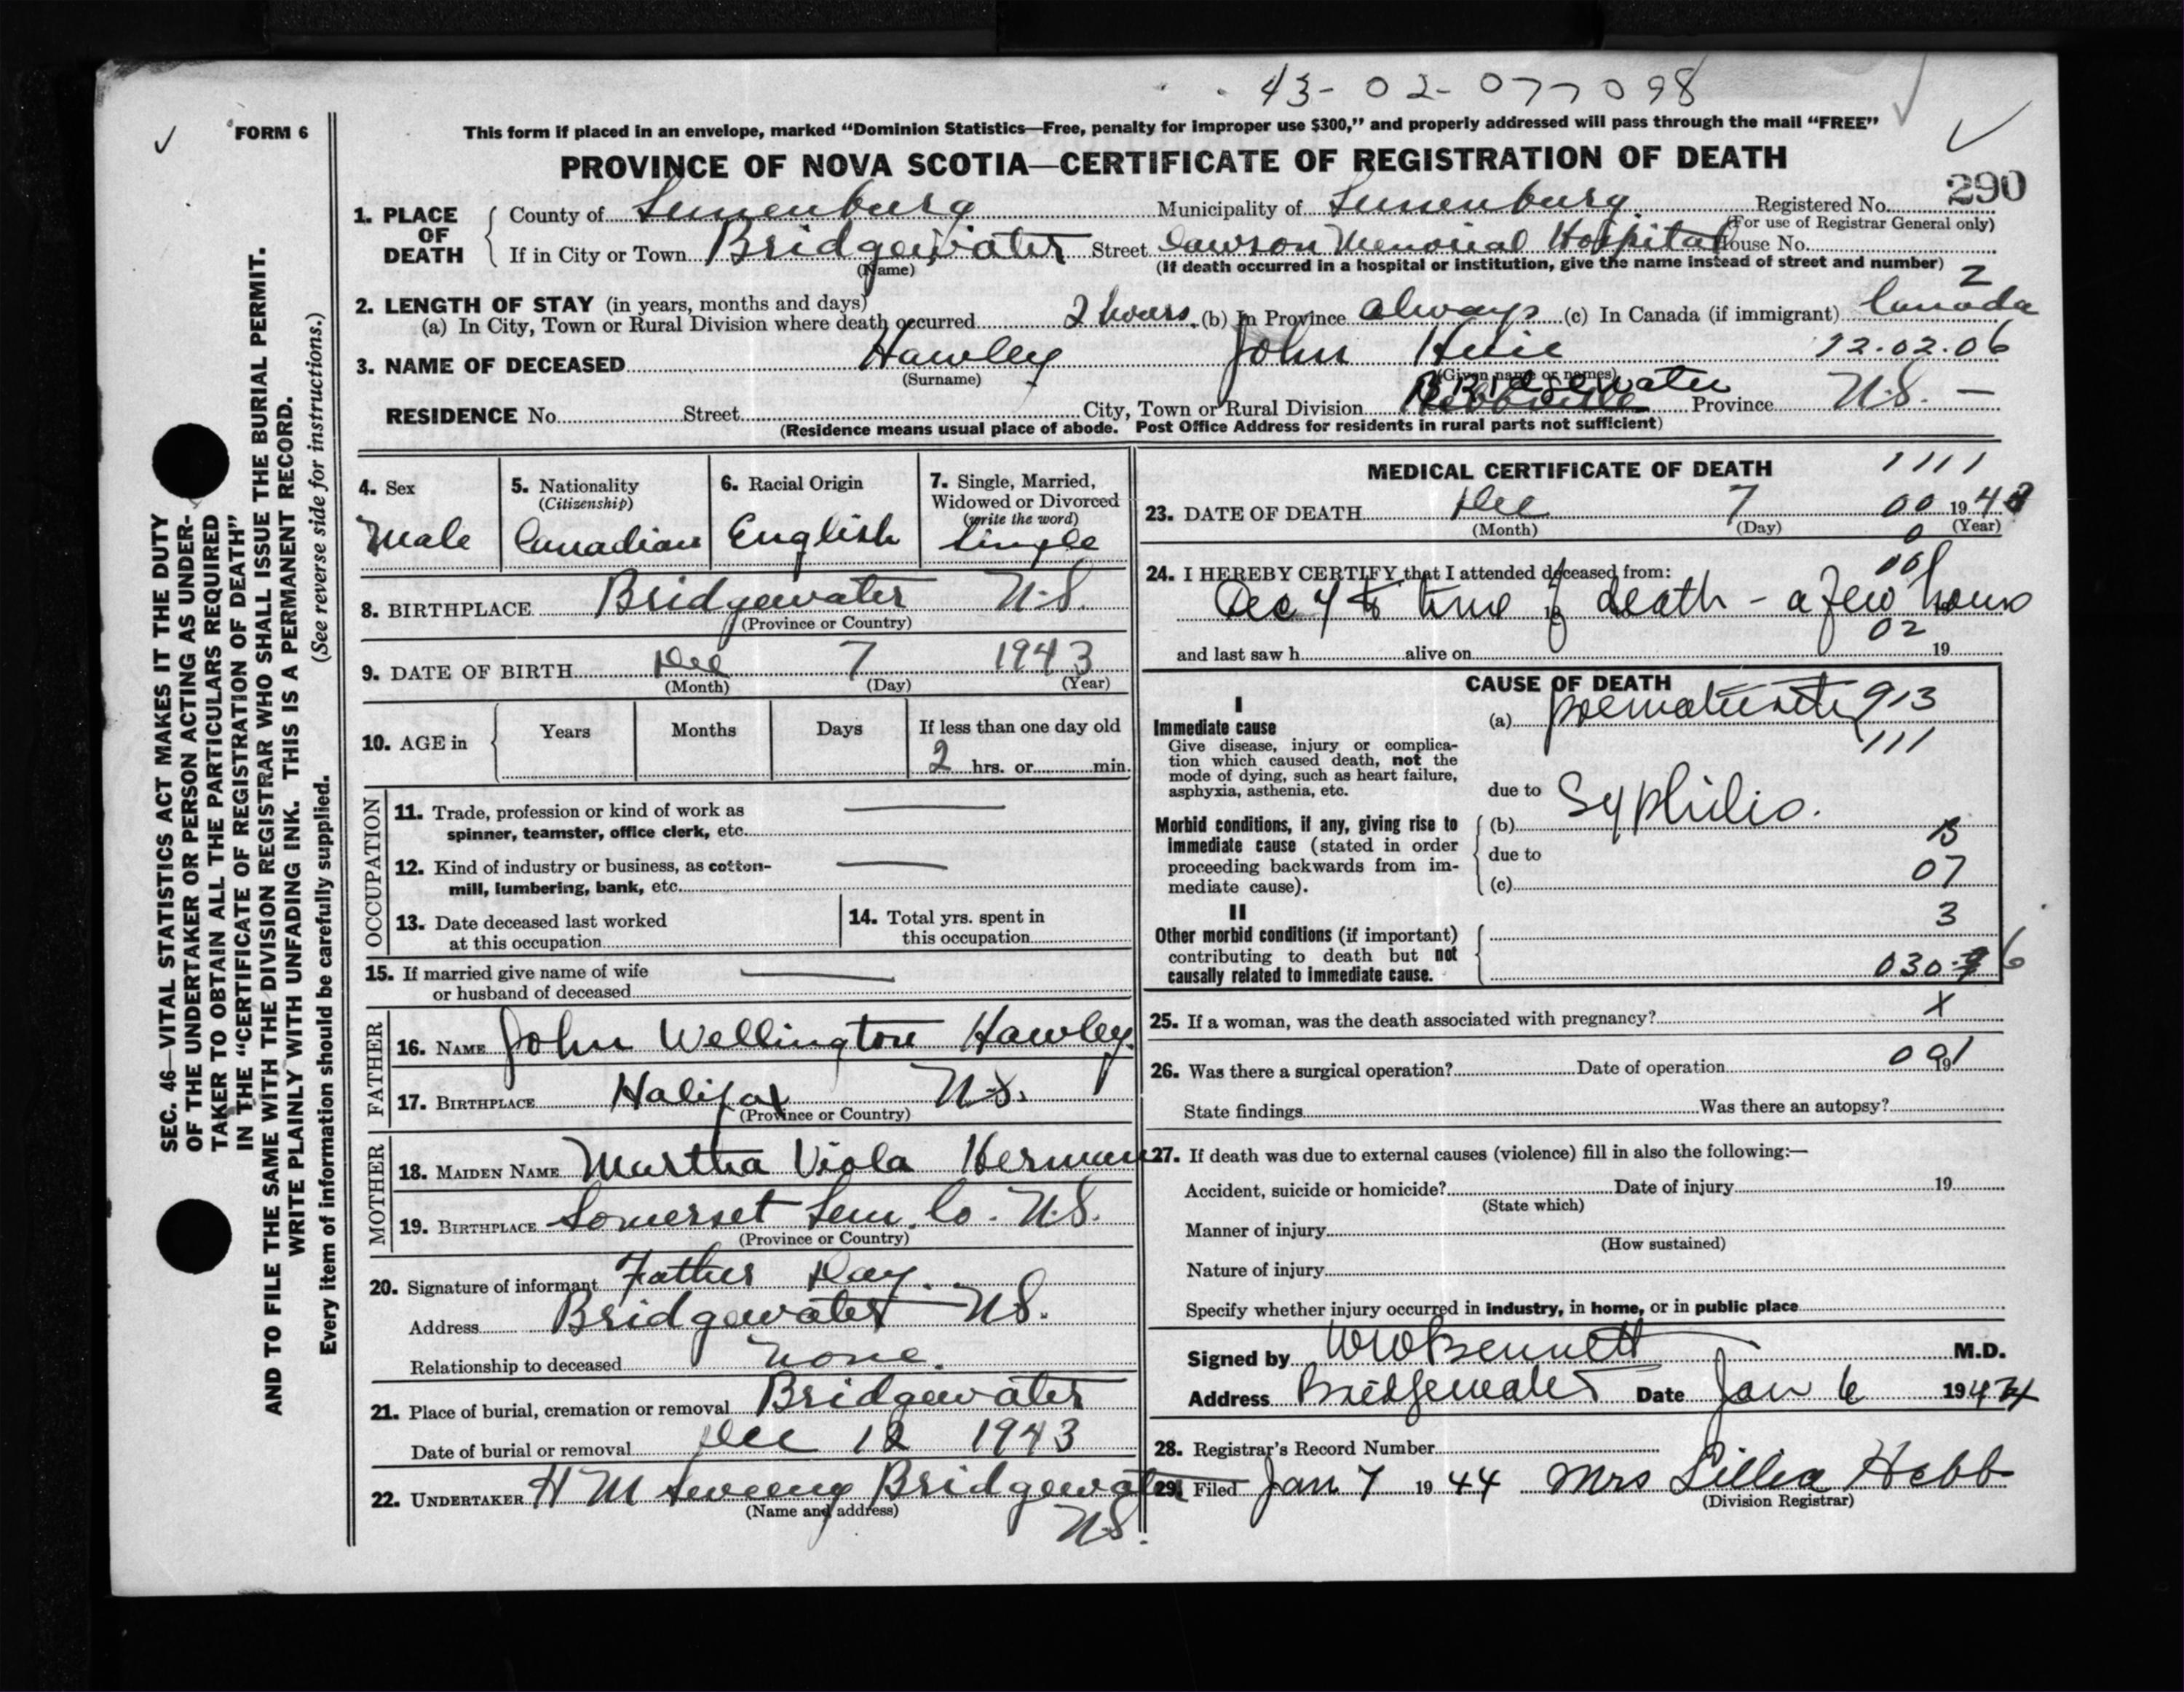 43-02-077098
FORM 6
This form if placed in an envelope, marked “Dominion Statistics—Free, penalty for improper use $300,” and properly addressed will pass through the mail “FREE”
PROVINCE OF NOVA SCOTIA—CERTIFICATE OF REGISTRATION OF DEATH
290
1. PLACE OF DEATH
County of Lunenburg Municipality of Lunenburg Registered No.
(For use of Registrar General only)
If in City or Town Bridgewater Street Dawson Memorial Hospital House No.
(Name) (If death occurred in a hospital or institution, give the name instead of street and number)
2
2. LENGTH OF STAY (in years, months and days)
(a) In City, Town or Rural Division where death occurred 2 hours (b) In Province always (c) In Canada (if immigrant) Canada
3. NAME OF DECEASED Hawley John 12.02.06
(Surname) (Given name or names)
RESIDENCE No. Street City, Town or Rural Division Bridgewater Province N.S. —
(Residence means usual place of abode. Post Office Address for residents in rural parts not sufficient)
4. Sex
Male
5. Nationality
(Citizenship)
Canadian
6. Racial Origin
English
7. Single, Married,
Widowed or Divorced
(write the word)
Single
8. BIRTHPLACE Bridgewater N.S.
(Province or Country)
9. DATE OF BIRTH Dec 7 1943
(Month) (Day) (Year)
10. AGE in
Years Months Days If less than one day old
2 hrs. or min.
OCCUPATION
11. Trade, profession or kind of work as
spinner, teamster, office clerk, etc. —
12. Kind of industry or business, as cotton-
mill, lumbering, bank, etc. —
13. Date deceased last worked
at this occupation
14. Total yrs. spent in
this occupation
15. If married give name of wife
or husband of deceased —
FATHER
16. NAME John Wellington Hawley
17. BIRTHPLACE Halifax N.S.
(Province or Country)
MOTHER
18. MAIDEN NAME Martha Viola Herman
19. BIRTHPLACE Somerset Lun. Co. N.S.
(Province or Country)
20. Signature of informant Father Day
Address Bridgewater N.S.
Relationship to deceased none.
21. Place of burial, cremation or removal Bridgewater
Date of burial or removal Dec 1943
22. UNDERTAKER H M Sweeny Bridgewater
(Name and address)
N.S.
MEDICAL CERTIFICATE OF DEATH 1111
23. DATE OF DEATH Dec 7 00 1943
(Month) (Day) (Year)
0
24. I HEREBY CERTIFY that I attended deceased from:
Dec 7 to time of death - a few hours
19
02
and last saw h alive on 19
CAUSE OF DEATH
I
Immediate cause
Give disease, injury or complica-
tion which caused death, not the
mode of dying, such as heart failure,
asphyxia, asthenia, etc.
(a) prematurity 913
111
due to
Morbid conditions, if any, giving rise to
immediate cause (stated in order
proceeding backwards from im-
mediate cause).
(b) Syphilis.
due to
07
(c)
II
3
Other morbid conditions (if important)
contributing to death but not
causally related to immediate cause.
030. 6
25. If a woman, was the death associated with pregnancy? X
091
26. Was there a surgical operation? Date of operation 19
State findings Was there an autopsy?
27. If death was due to external causes (violence) fill in also the following:—
Accident, suicide or homicide? Date of injury 19
(State which)
Manner of injury
(How sustained)
Nature of injury
Specify whether injury occurred in industry, in home, or in public place
Signed by W W Bennett M.D.
Address Bridgewater Date Jan 6 1944
28. Registrar's Record Number
29. Filed Jan 7 1944 Mrs Lillia Hebb
(Division Registrar)
SEC. 46—VITAL STATISTICS ACT MAKES IT THE DUTY
OF THE UNDERTAKER OR PERSON ACTING AS UNDER-
TAKER TO OBTAIN ALL THE PARTICULARS REQUIRED
IN THE “CERTIFICATE OF REGISTRATION OF DEATH”
AND TO FILE THE SAME WITH THE DIVISION REGISTRAR WHO SHALL ISSUE THE BURIAL PERMIT.
WRITE PLAINLY WITH UNFADING INK. THIS IS A PERMANENT RECORD.
Every item of information should be carefully supplied. (See reverse side for instructions.)